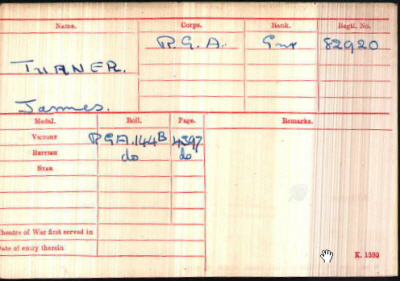 Name. Corps. Rank. Regtl. No.
R.G.A. Gnr 82920
TURNER.
James.
Medal. Roll. Page. Remarks.
Victory RGA.144B 4397
British do do
Star
Theatre of War first served in
Date of entry therein
K. 1380